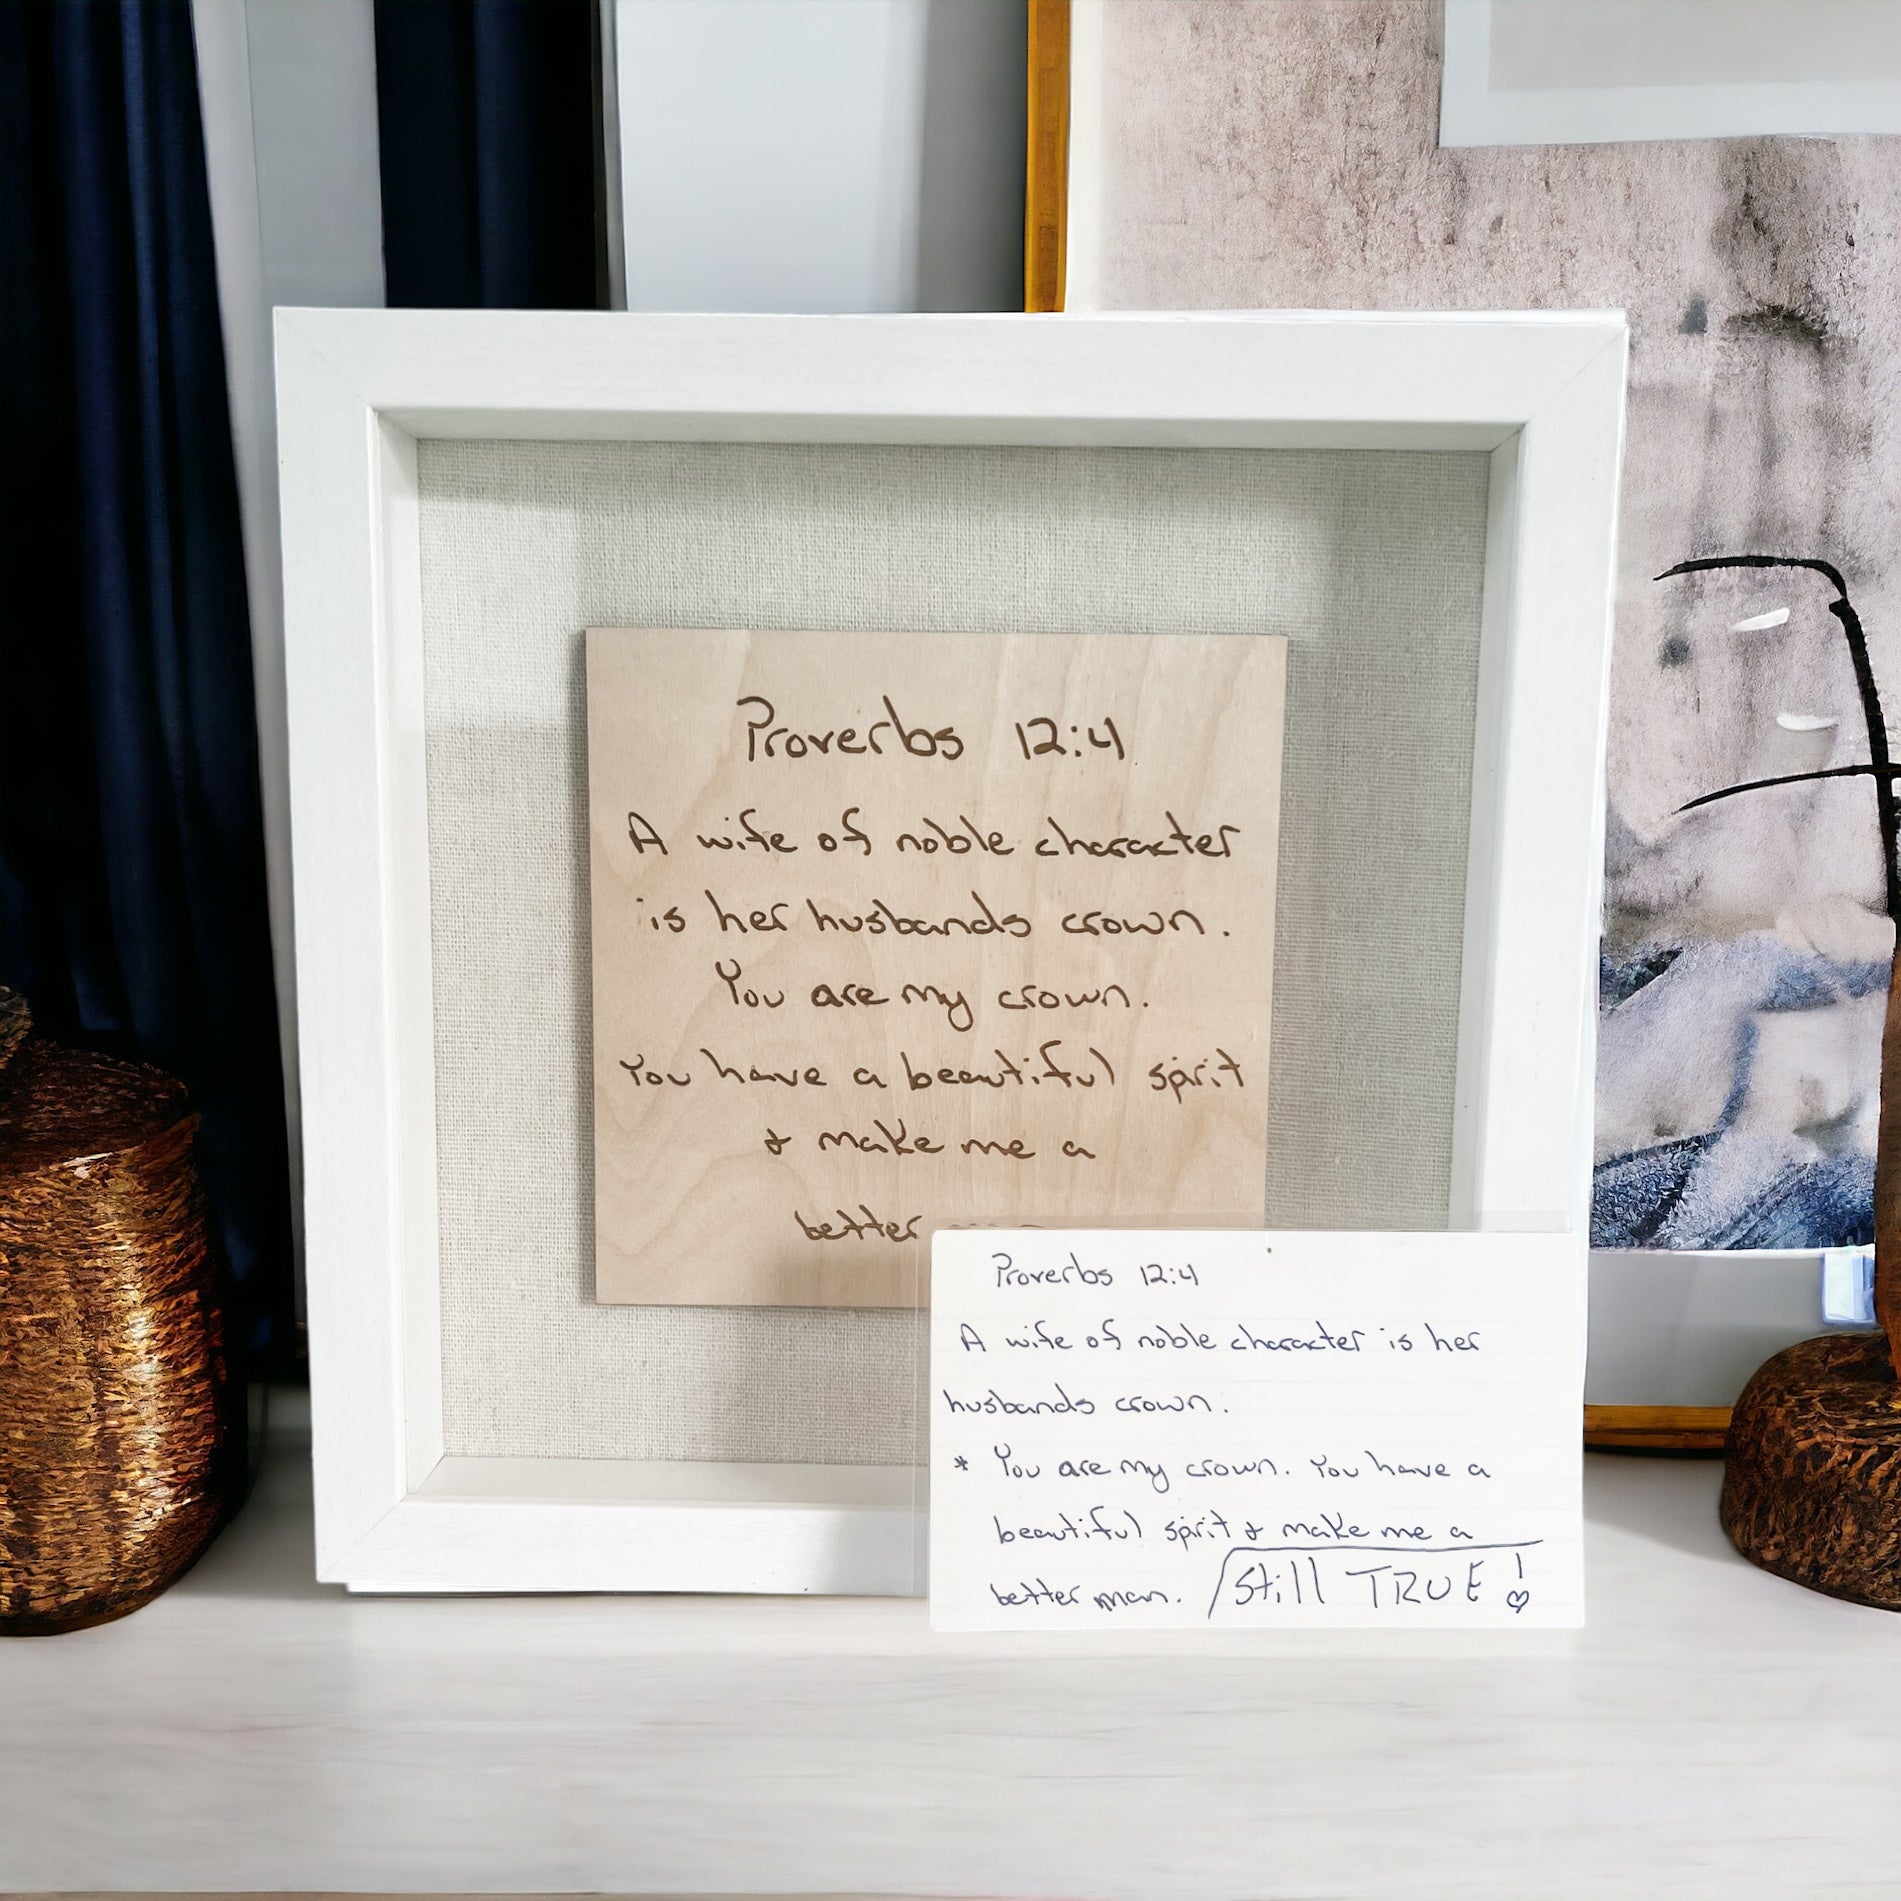 Proverbs 12:4
A wife of noble character
is her husbands crown.
You are my crown.
You have a beautiful spirit
& make me a
better
Proverbs 12:4
A wife of noble character is her
husbands crown.
* You are my crown. You have a
beautiful spirit & make me a
better man. Still TRUE!♡